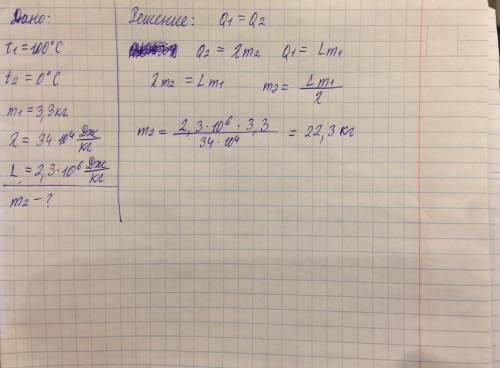 Дано:
t₁=100°C
t₂=0°C
m₁=3,3кг
λ=34·10⁴ Дж/кг
L=2,3·10⁶ Дж/кг
m₂-?
Решение: Q₁=Q₂
Q₂=λm₂ Q₁=Lm₁
λm₂=Lm₁ m₂=Lm₁/λ
m₂=2,3·10⁶·3,3/34·10⁴=22,3кг